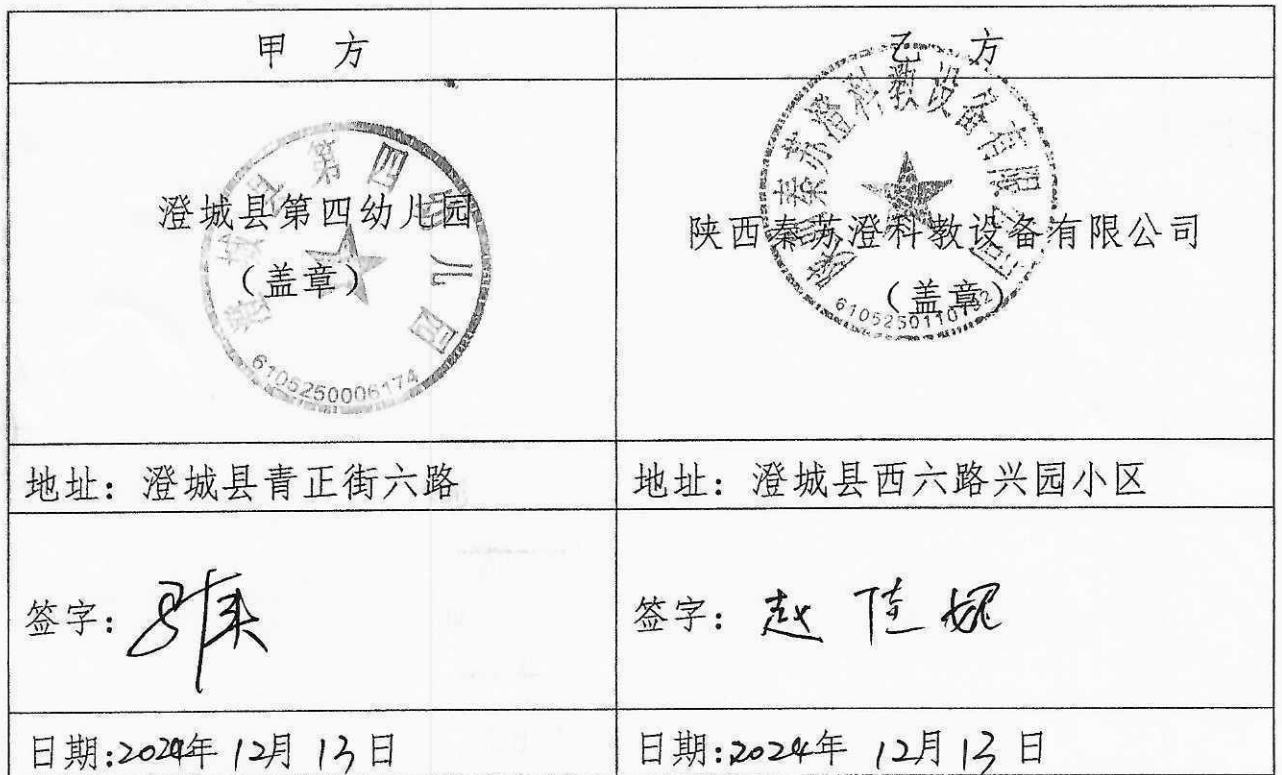 甲 方
乙 方
澄城县第四幼儿园
（盖章）
澄城县第四幼儿园
6105250006174
陕西秦苏澄科教设备有限公司
（盖章）
陕西秦苏澄科教设备有限公司
6105250110792
地址：澄城县青正街六路
地址：澄城县西六路兴园小区
签字：
签字：赵佳妮
日期:2024年 12月 13日
日期:2024年 12月 13日